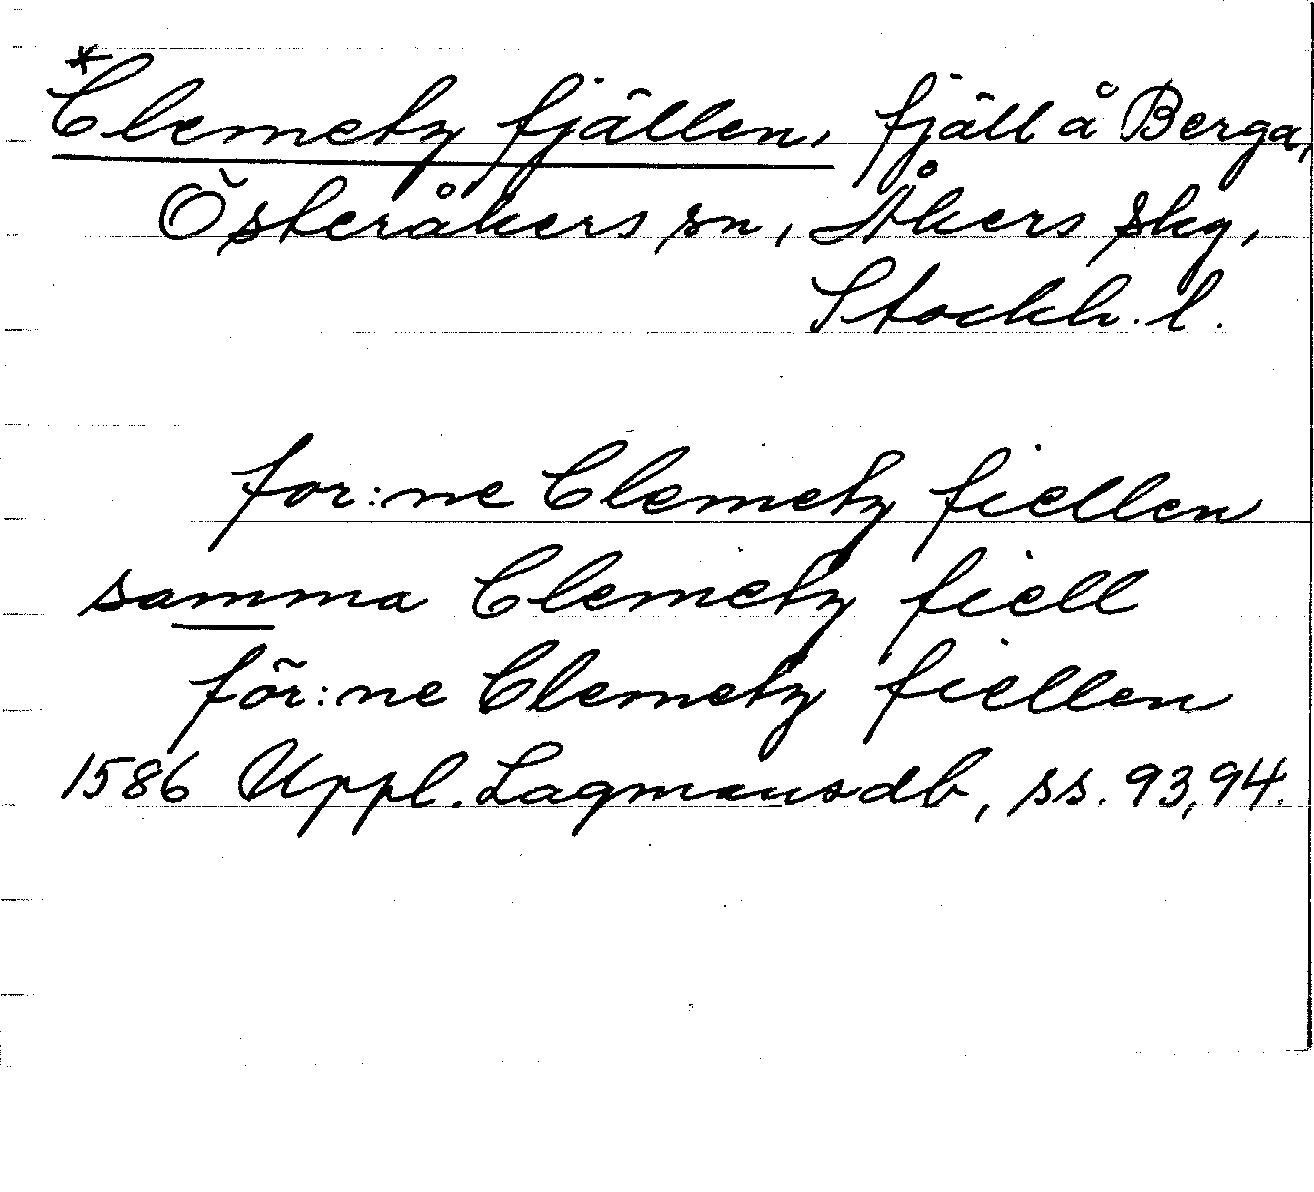 *Clemetz fjällen, fjäll å Berga,
Österåkers sn, Åkers skg,
Stockh. l.
for:ne Clemetz fiellen
samma Clemetz fiell
för:ne Clemetz fiellen
1586 Uppl. Lagmansdb, ss. 93, 94.